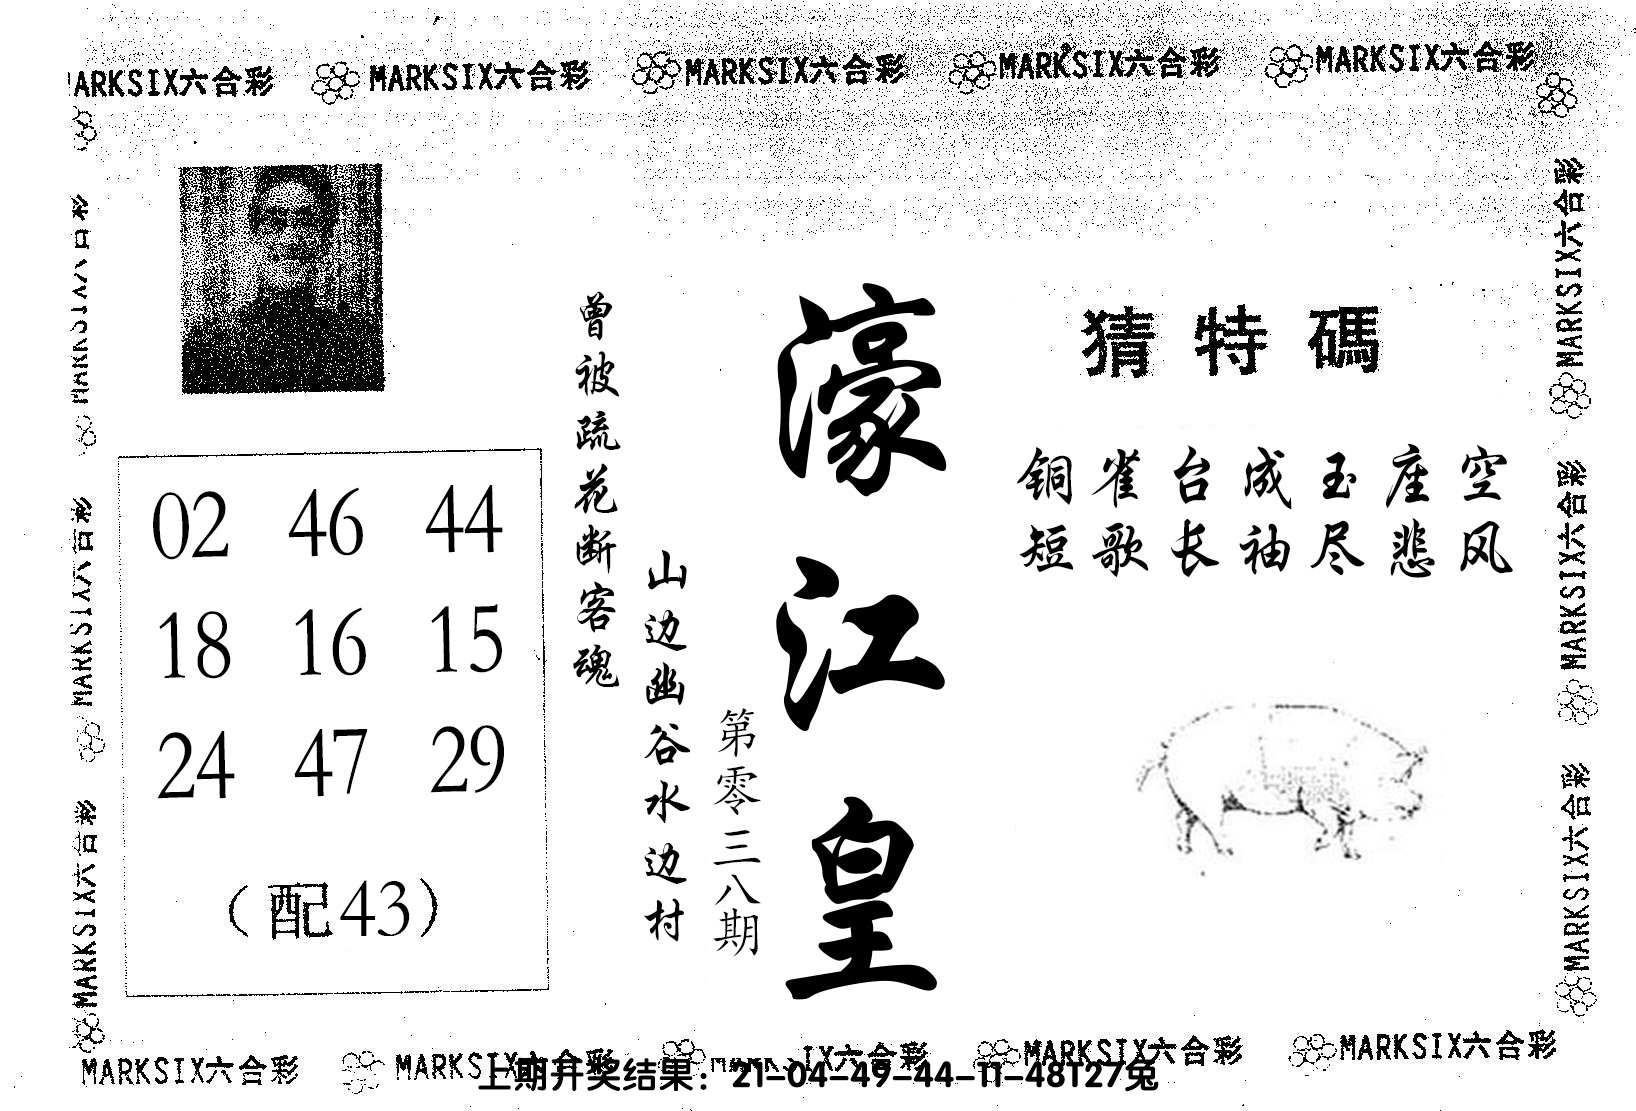 MARKSIX六合彩 MARKSIX六合彩 MARKSIX六合彩 MARKSIX六合彩 MARKSIX六合彩
猜特碼
铜雀台成玉座空
短歌长袖尽悲风
濠江皇
第零三八期
山边幽谷水边村
曾被疏花断客魂
02 46 44
18 16 15
24 47 29
（配43）
MARKSIX六合彩
MARKSIX六合彩
MARKSIX六合彩
MARKSIX六合彩
MARKSIX六合彩
MARKSIX六合彩
MARKSIX六合彩 MARKSIX六合彩 IX六合彩 MARKSIX六合彩 MARKSIX六合彩
上期开奖结果：21-04-49-44-11-48T27兔